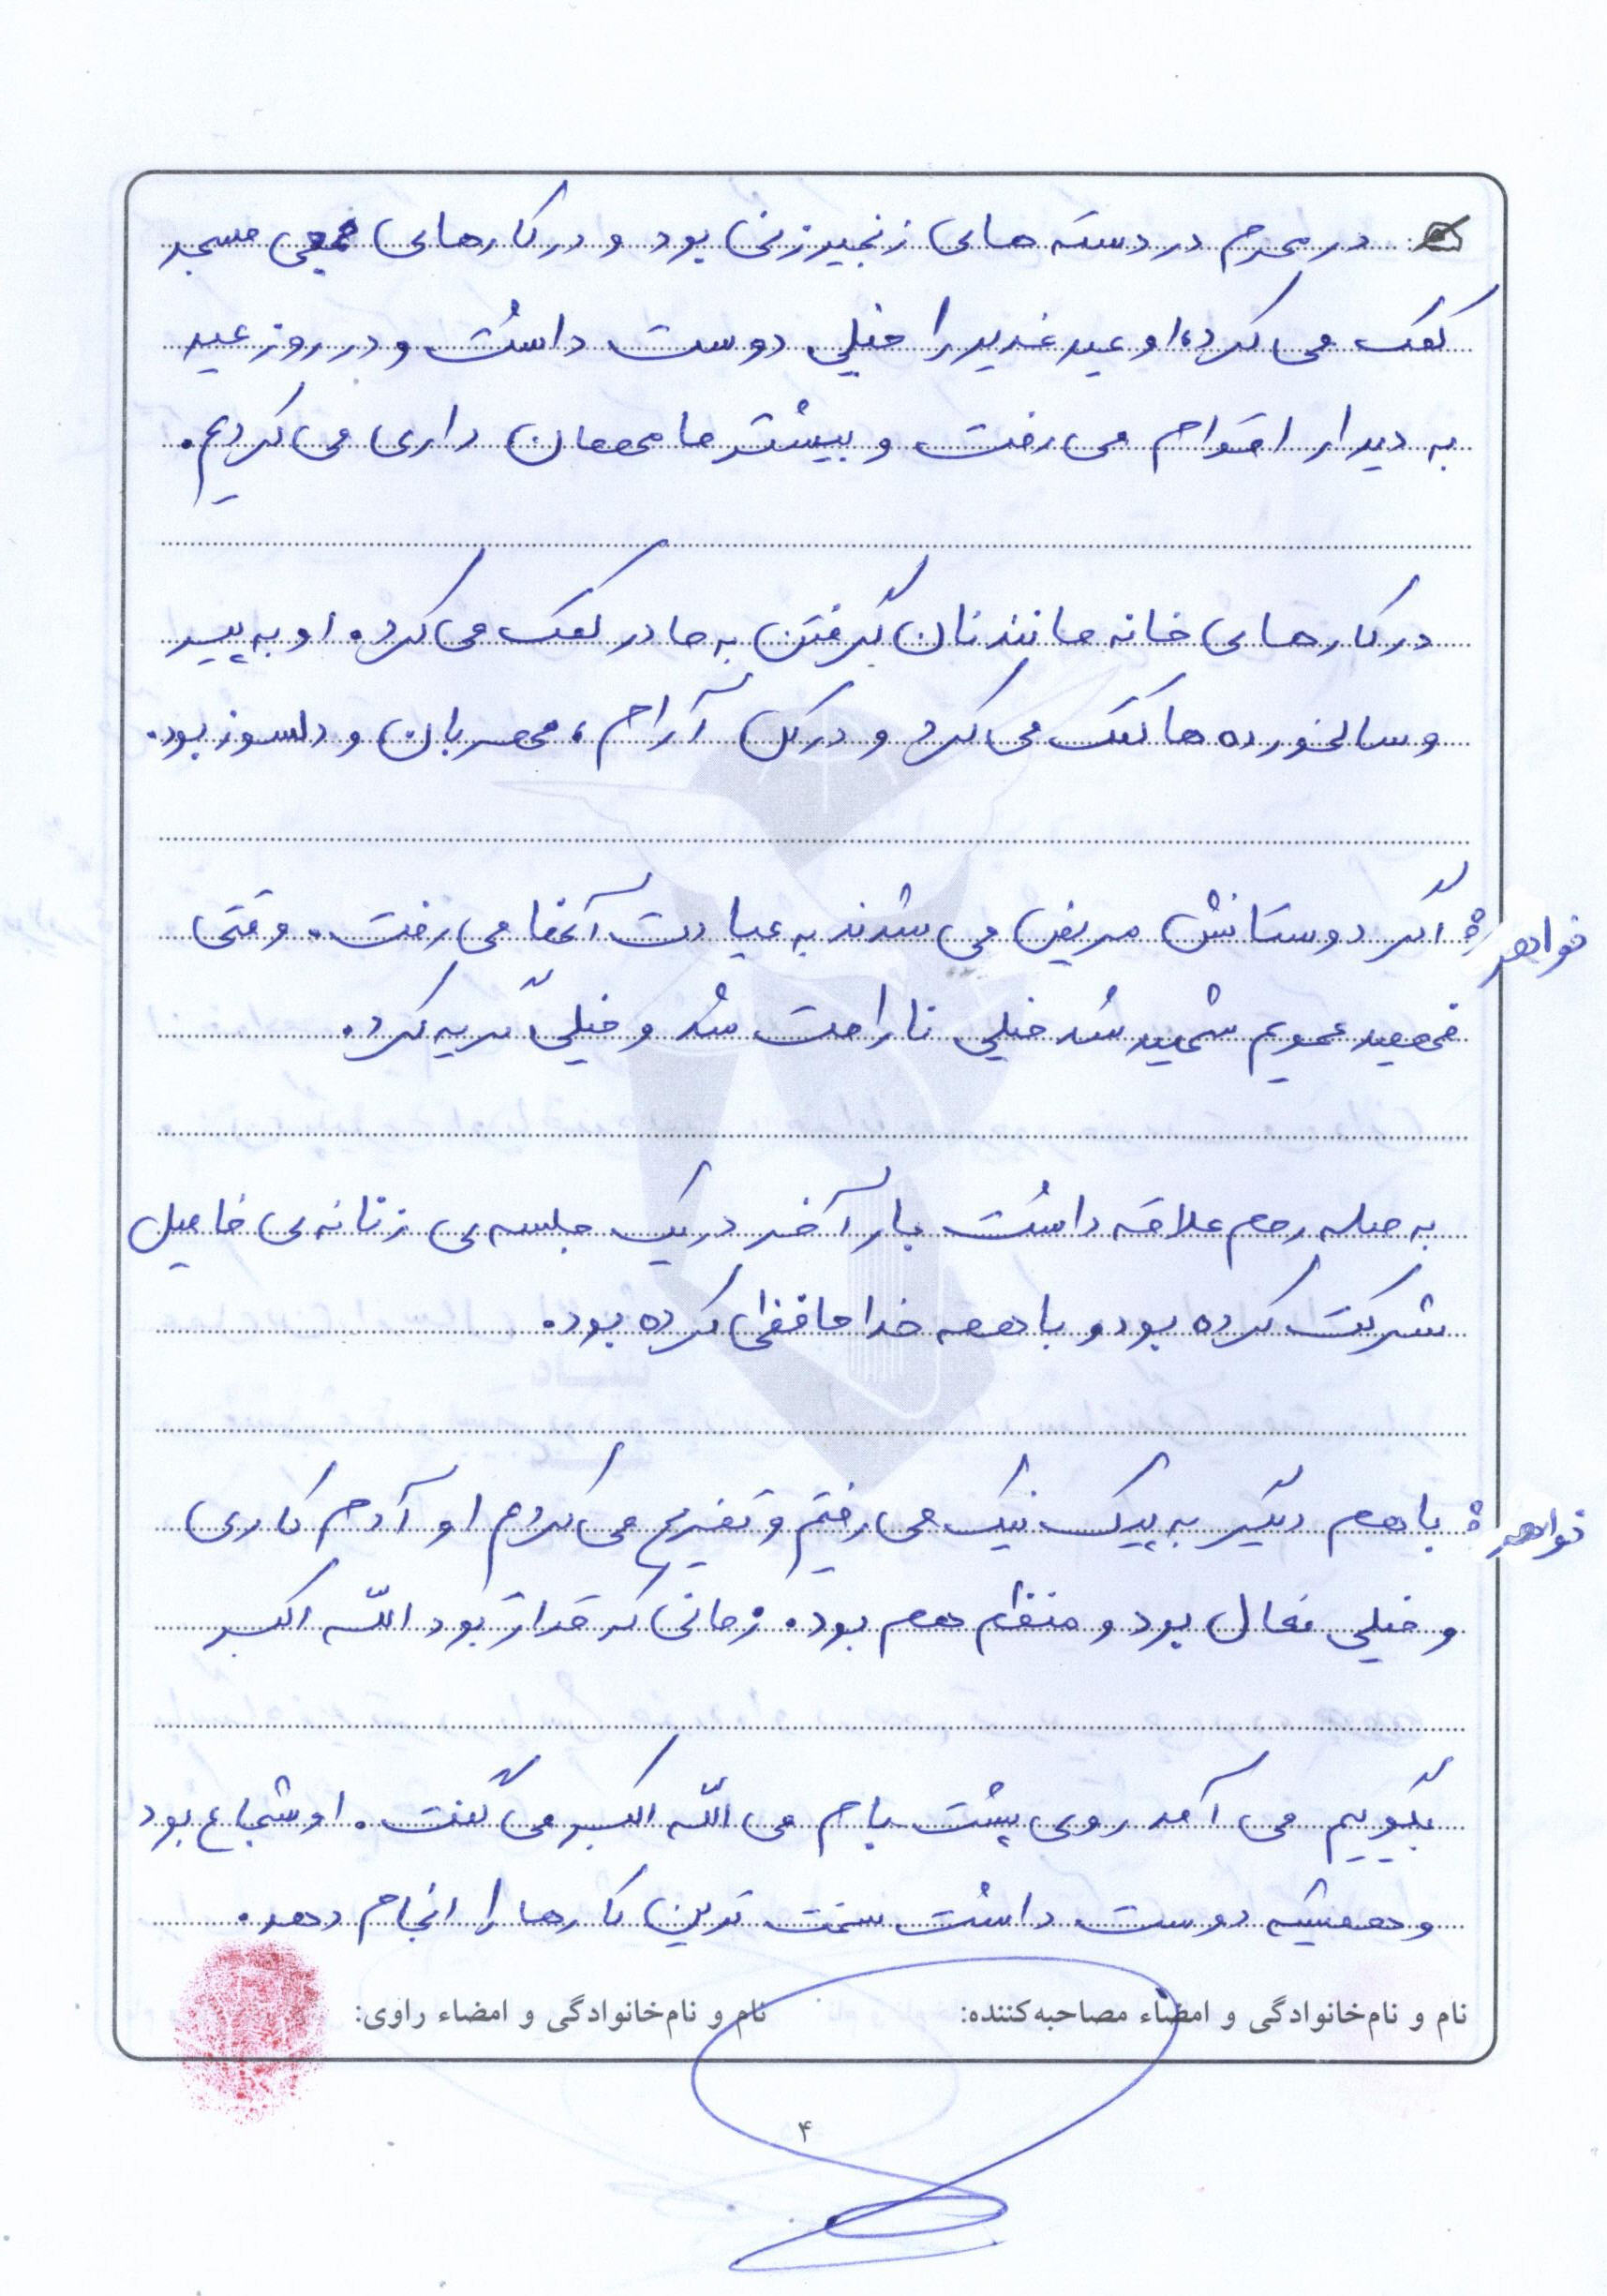 در محرم در دسته های زنجیرزنی بود و در کارهای جمعی مسجد
کمک می کرد، او عید غدیر را خیلی دوست داشت و در روز عید
به دیدار اقوام می رفت و بیشتر ما مهمان داری می کردیم.
در کارهای خانه مانند نان گرفتن به مادر کمک می کرد. او به پیر
و سالخورده ها کمک می کرد و در کل آرام، مهربان و دلسوز بود.
خواهر: اگر دوستانش مریض می شدند به عیادت آنها می رفت. وقتی
عمویم شهید شد خیلی ناراحت شد و خیلی گریه کرد.
به صله رحم علاقه داشت بار آخر در یک جلسه ی زنانه ی فامیل
شرکت کرده بود و با همه خداحافظی کرده بود.
خواهر: با هم دیگر به پیک نیک می رفتیم و تفریح می کردیم او آدم کاری
و خیلی فعال بود و منظم هم بود. زمانی که قرار بود اللّه اکبر
بگوییم می آمد روی پشت بام می اللّه اکبر می گفت. او شجاع بود
و همیشه دوست داشت سخت ترین کارها را انجام دهد.
نام و نام‌خانوادگی و امضاء مصاحبه‌کننده: نام و نام‌خانوادگی و امضاء راوی:
۴